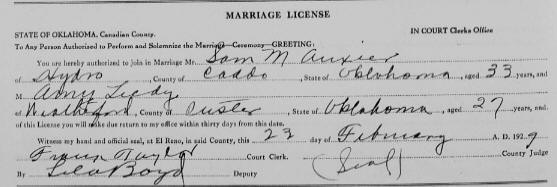 MARRIAGE LICENSE
STATE OF OKLAHOMA, Canadian County. IN COURT Clerks Office
To Any Person Authorized to Perform and Solemnize the Marriage Ceremony—GREETING:
You are hereby authorized to join in Marriage Mr. Sam M Auxier
of Hydro, County of Caddo, State of Oklahoma, aged 33 years, and
M Amy Leedy
of Weatherford, County of Custer, State of Oklahoma, aged 27 years, and
of this License you will make due return to my office within thirty days from this date.
Witness my hand and official seal, at El Reno, in said County, this 23 day of February A. D. 1929
Taylor Court Clerk. (Seal) County Judge
By Lela Boyd Deputy